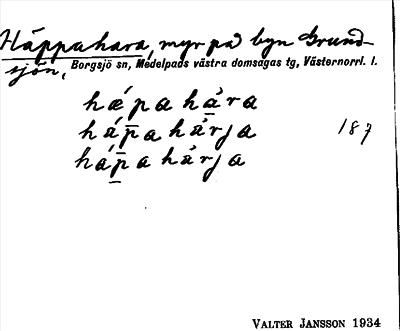 Häppahara, myr på byn Grund-
sjön, Borgsjö sn, Medelpads västra domsagas tg, Västernorrl. l.
hǽpa hàra
há̄pa hàrja 187
há̄pa hàrja
VALTER JANSSON 1934